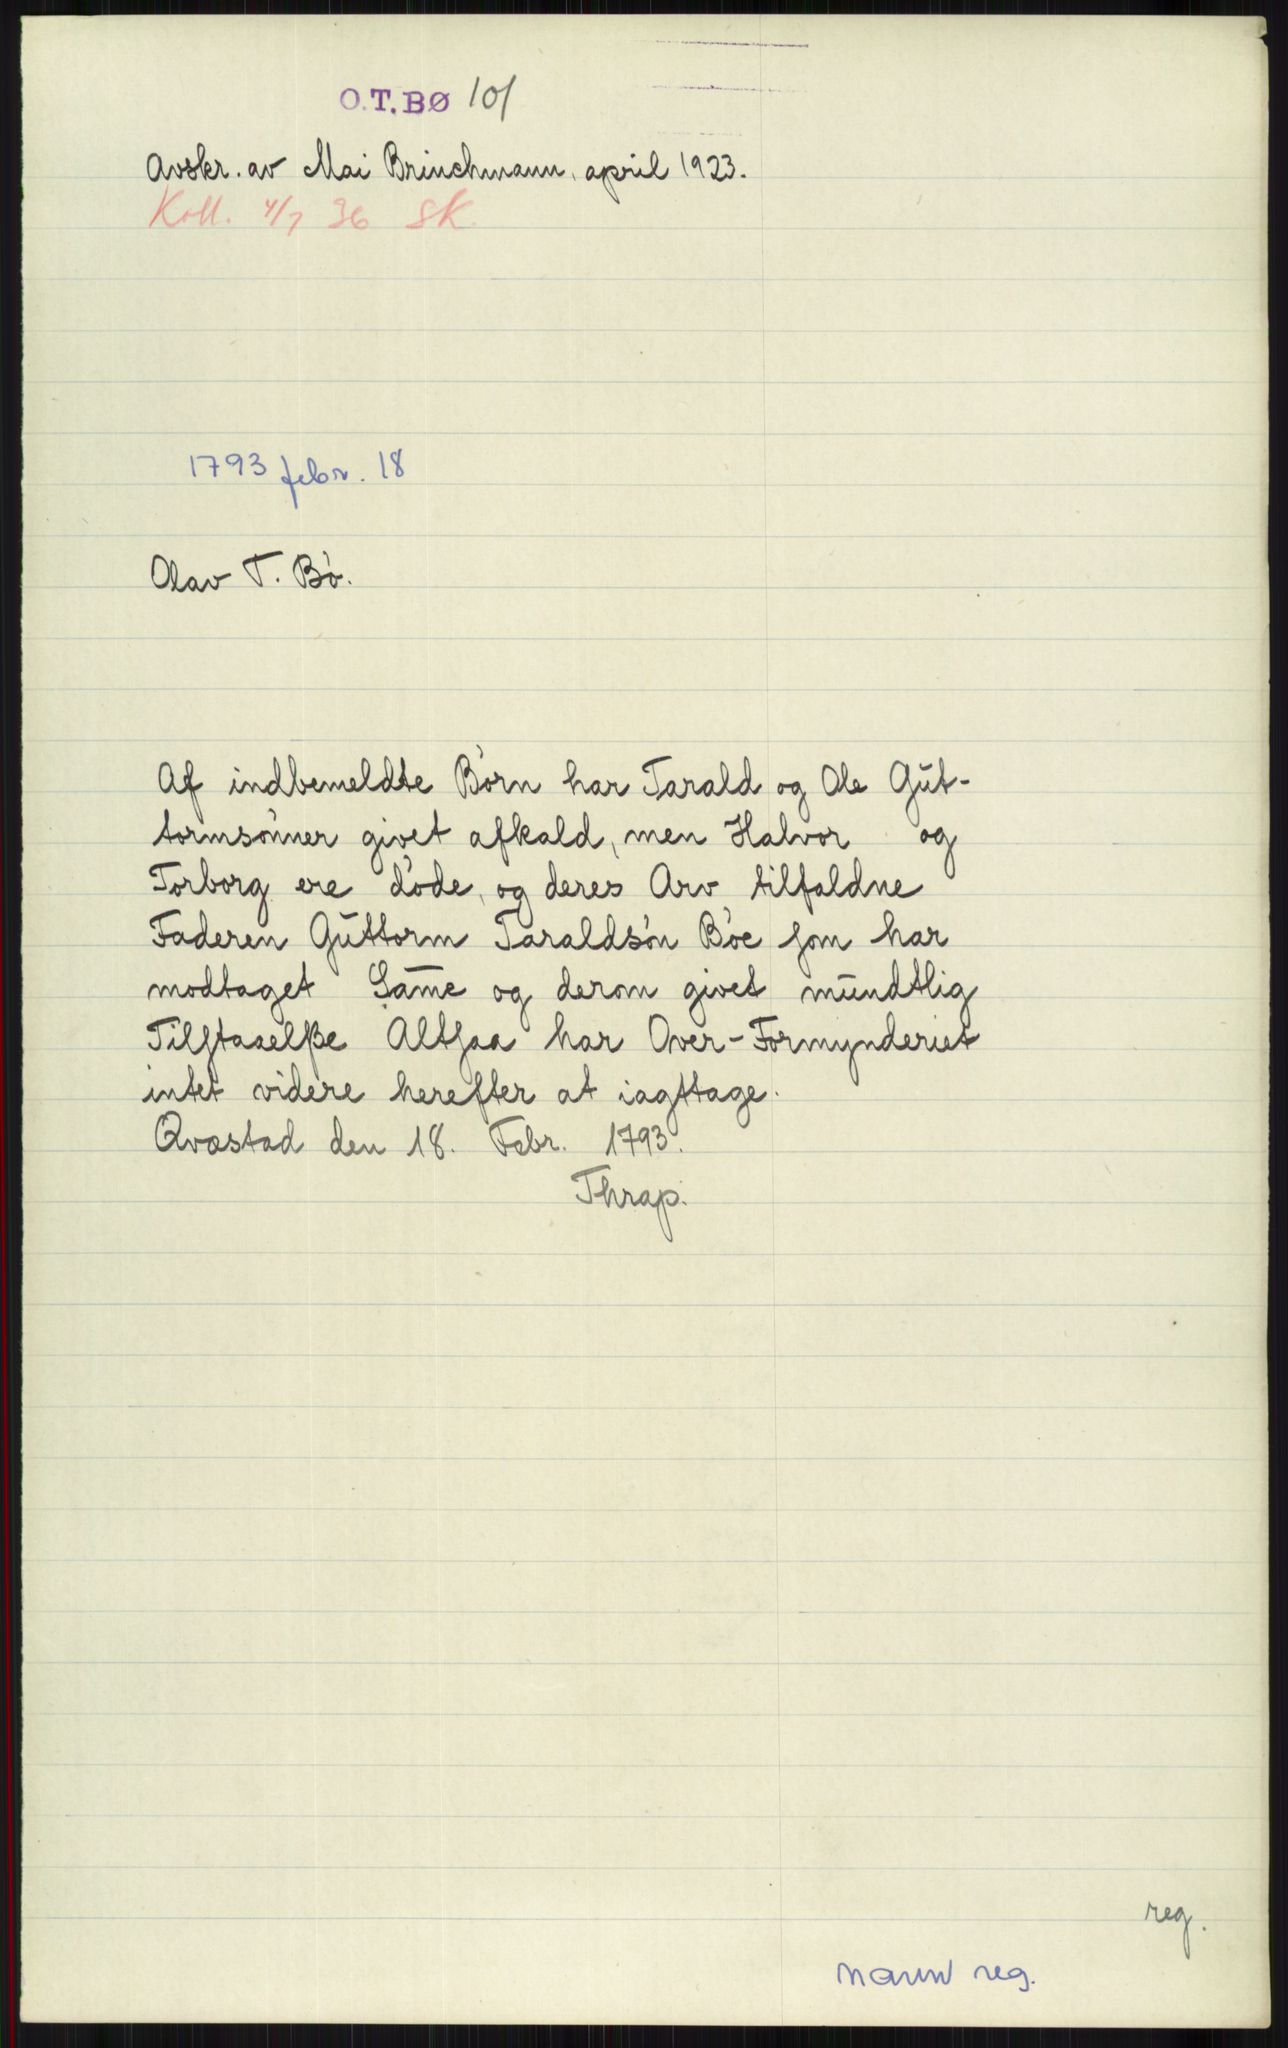 O.T.BØ 101
Avskr. av Mai Brinchmann, april 1923.
Koll. 4/7 36 SK.
1793 febr. 18
Olav T. Bö.
Af indbemeldte Börn har Tarald og Ole Gut-
tormsönner givet afkald, men Halvor og
Torborg ere döde, og deres Arv tilfaldne
Faderen Guttorm Taraldsön Böe som har
modtaget Sam̅e og derom givet mundtlig
Tilstaaelße Altsaa har Over-Formynderiet
intet videre herefter at iagttage.
Qvæstad den 18. Febr. 1793.
Thrap.
reg.
navn reg.